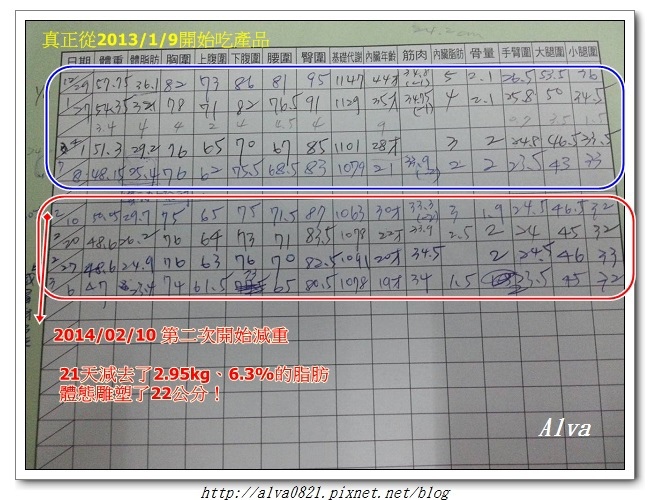 真正從2013/1/9開始吃產品
日期 體重 體脂肪 胸圍 上腹圍 下腹圍 腰圍 臀圍 基礎代謝 內臟年齡 筋肉 內臟脂肪 骨量 手臂圍 大腿圍 小腿圍
12/29 57.75 36.1 82 73 86 81 95 1147 44才 5 2.1 26.5 53.5 36
1/27 54.35 78 71 82 76.5 91 1129 35才 34.75 4 2.1 25.8 50 34.5
1 51.3 29.2 76 65 70 67 85 1101 28才 3 2 24.8 46.5 33.5
48.15 25.4 76 62 75.5 68.5 83 1079 21 33.9 2 2 23.5 43 33
2/10 29.7 75 65 75 71.5 87 1063 30才 33.3 3 1.9 24.5 46.5 32
20 48.6 26.2 76 64 73 71 83.5 1078 22才 33.9 2.5 2 24 45 32
2/27 48.6 24.9 76 63 76 70 82.5 1091 20才 34.5 2 24.5 46 33
3/6 47 23.4 74 61.5 73 65 80.5 1078 19才 34 1.5 23.5 45 32
2014/02/10 第二次開始減重
21天減去了2.95kg、6.3%的脂肪
體態雕塑了22公分！
Alva
http://alva0821.pixnet.net/blog